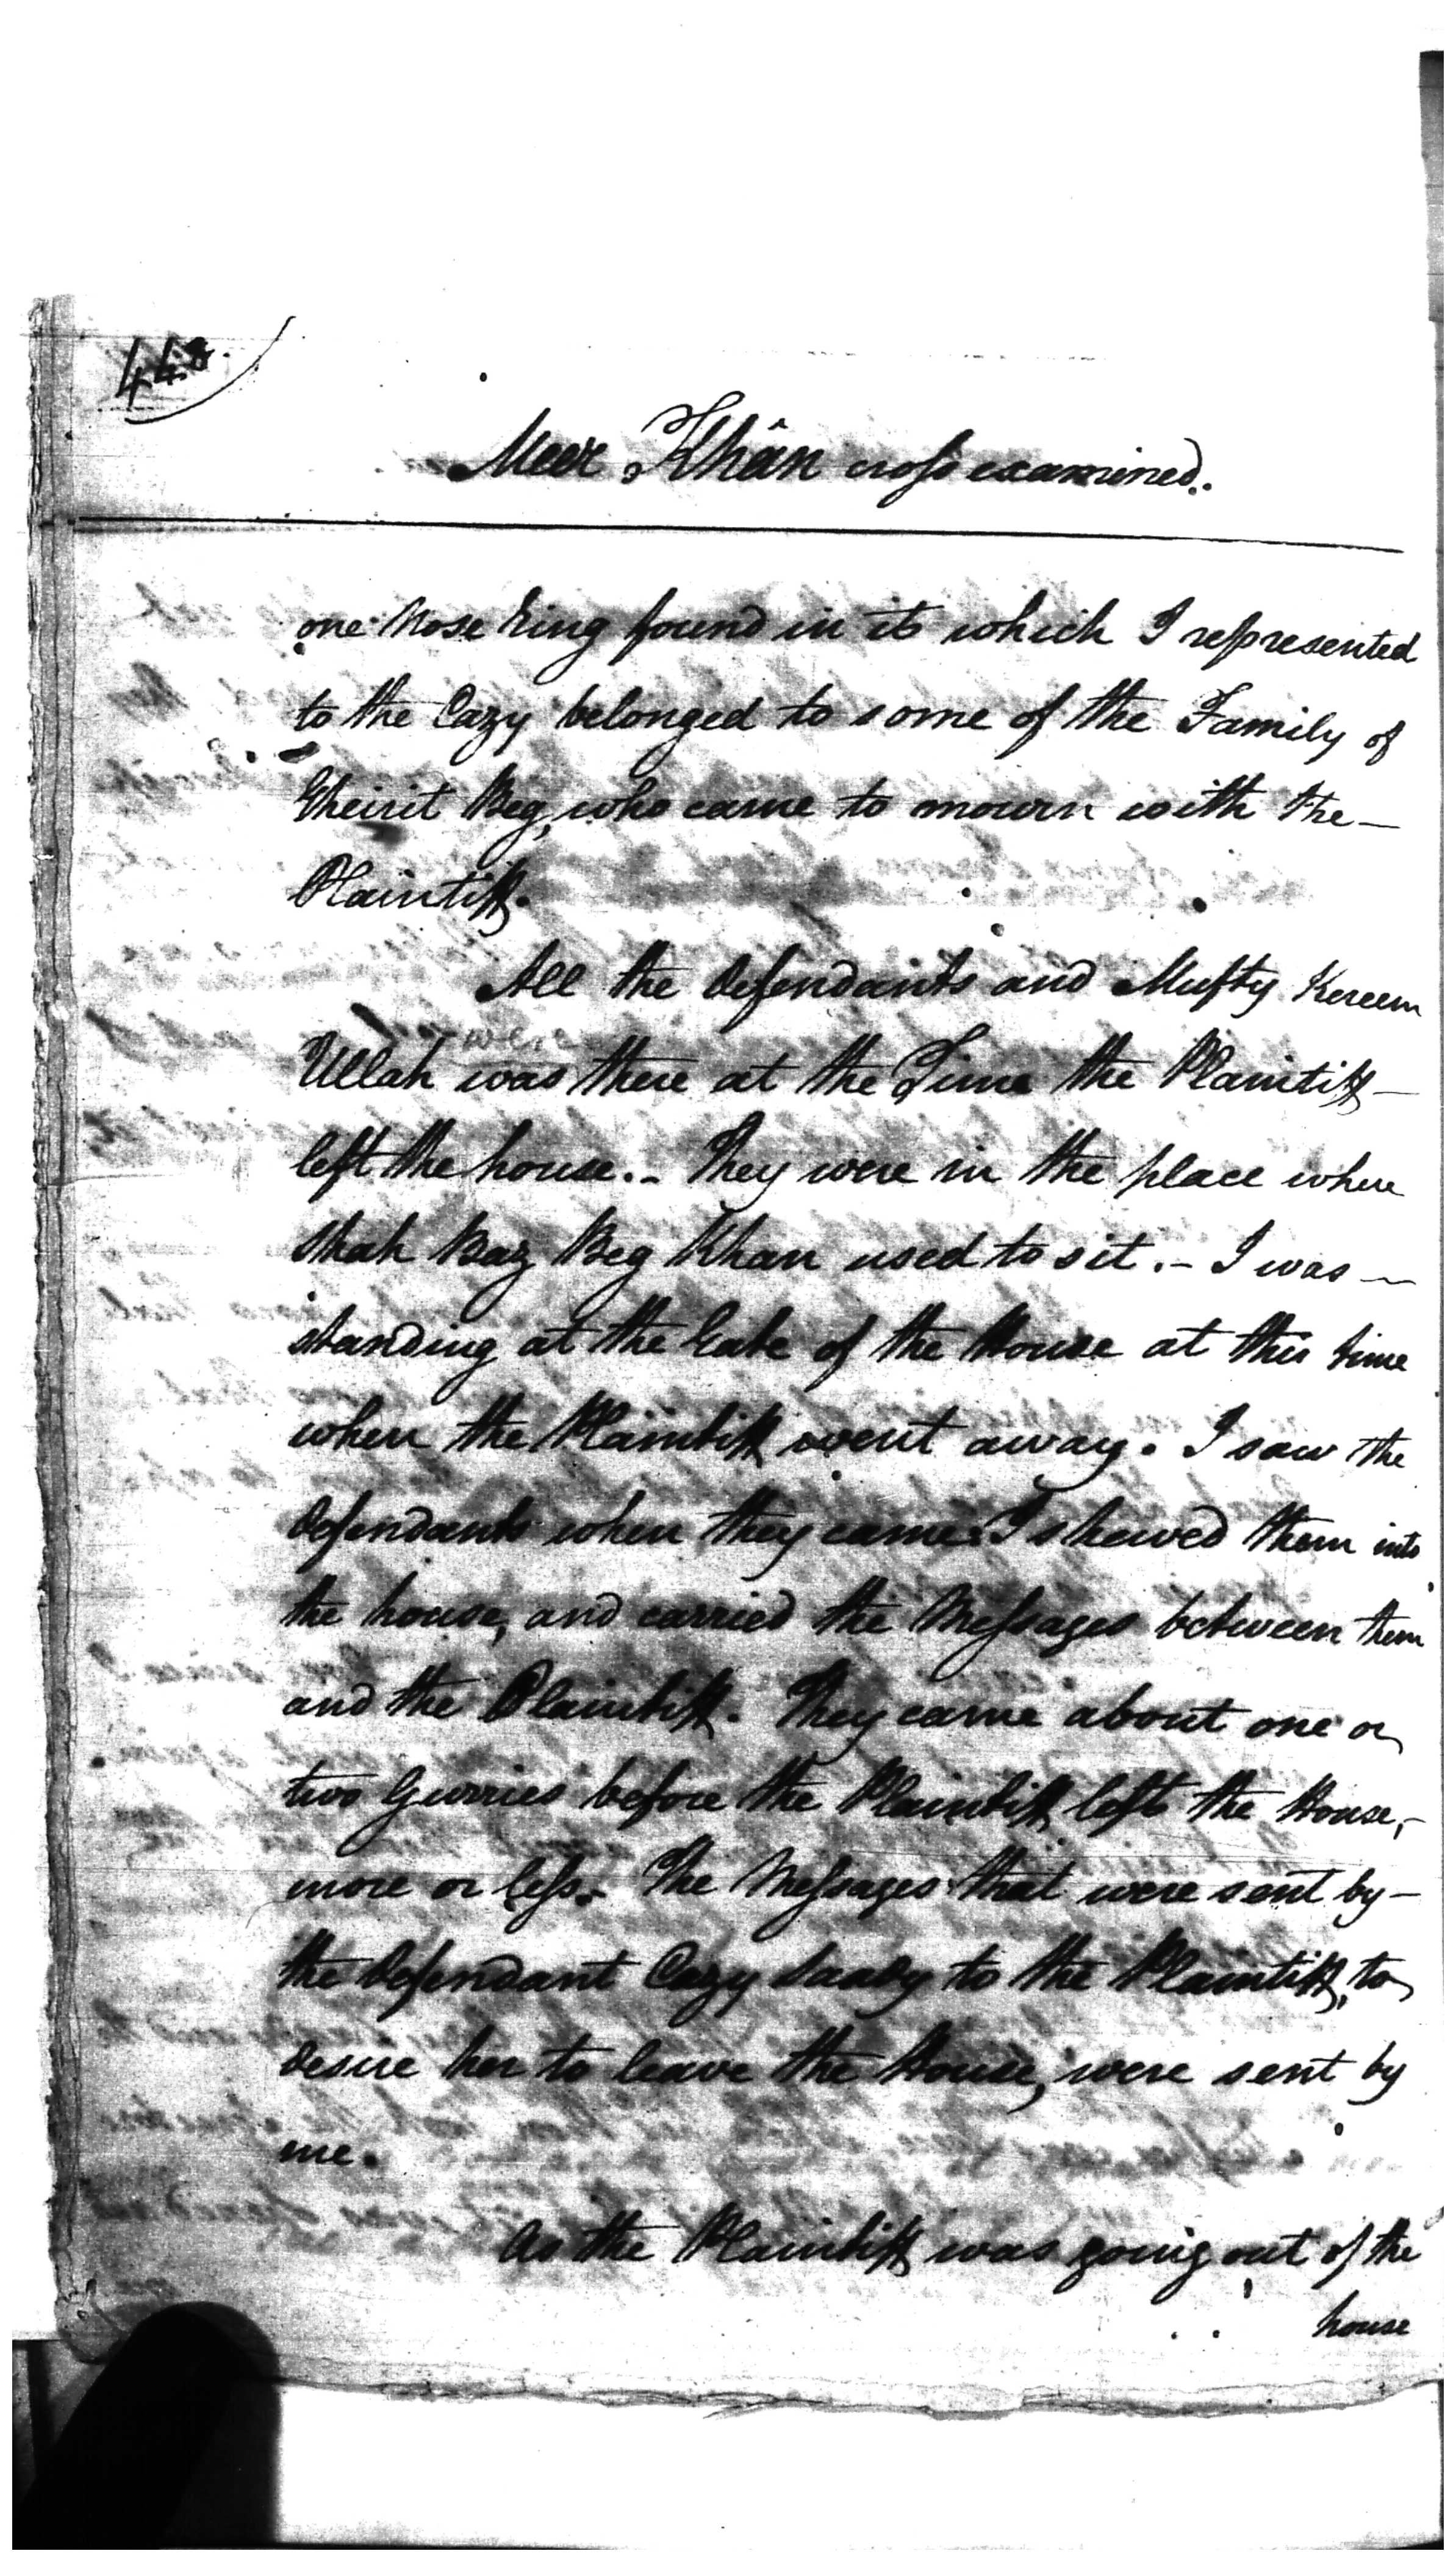 448.
Meer Khân cross examined.
one Nose Ring found in it which I represented
to the Cazy belonged to some of the Family of
Gheirit Beg, who came to mourn with the
Plaintiff.
All the defendants and Mufty Kereem
were
Ullah was there at the Time the Plaintiff
left the house. - They were in the place where
Shah Baz Beg Khan used to sit. - I was
standing at the Gate of the House at this time
when the Plaintiff went away. I saw the
defendants when they came. I shewed them into
the house, and carried the Messages between them
and the Plaintiff. They came about one or
two Gurries before the Plaintiff left the House,
more or less. The Messages that were sent by
the defendant Cazy Saady to the Plaintiff, to
desire her to leave the House, were sent by
me.
As the Plaintiff was going out of the
house